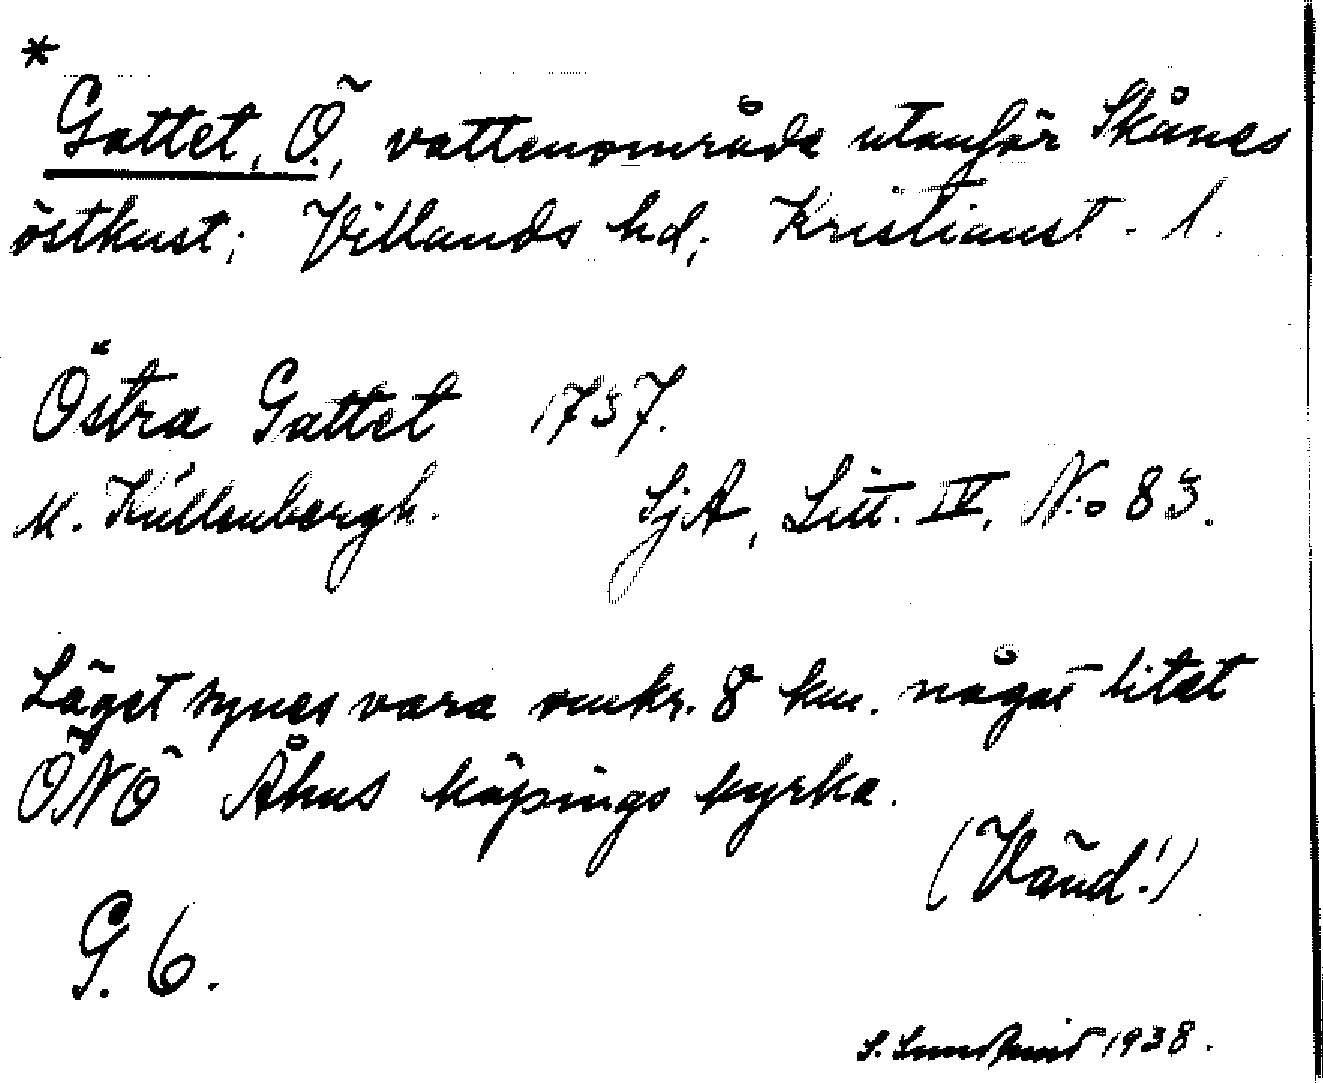 *
Gattet, Ö., vattenområde utanför Skånes
östkust; Villands hd; Kristianst. l.
Östra Gattet 1737.
M. Küllenbergh. SjA, Litt. IV, N:o 83.
Läget synes vara omkr. 8 km. något litet
ÖNÖ Åhus köpings kyrka.
(Vänd!)
G. 6.
S. Lundkvist 1938.